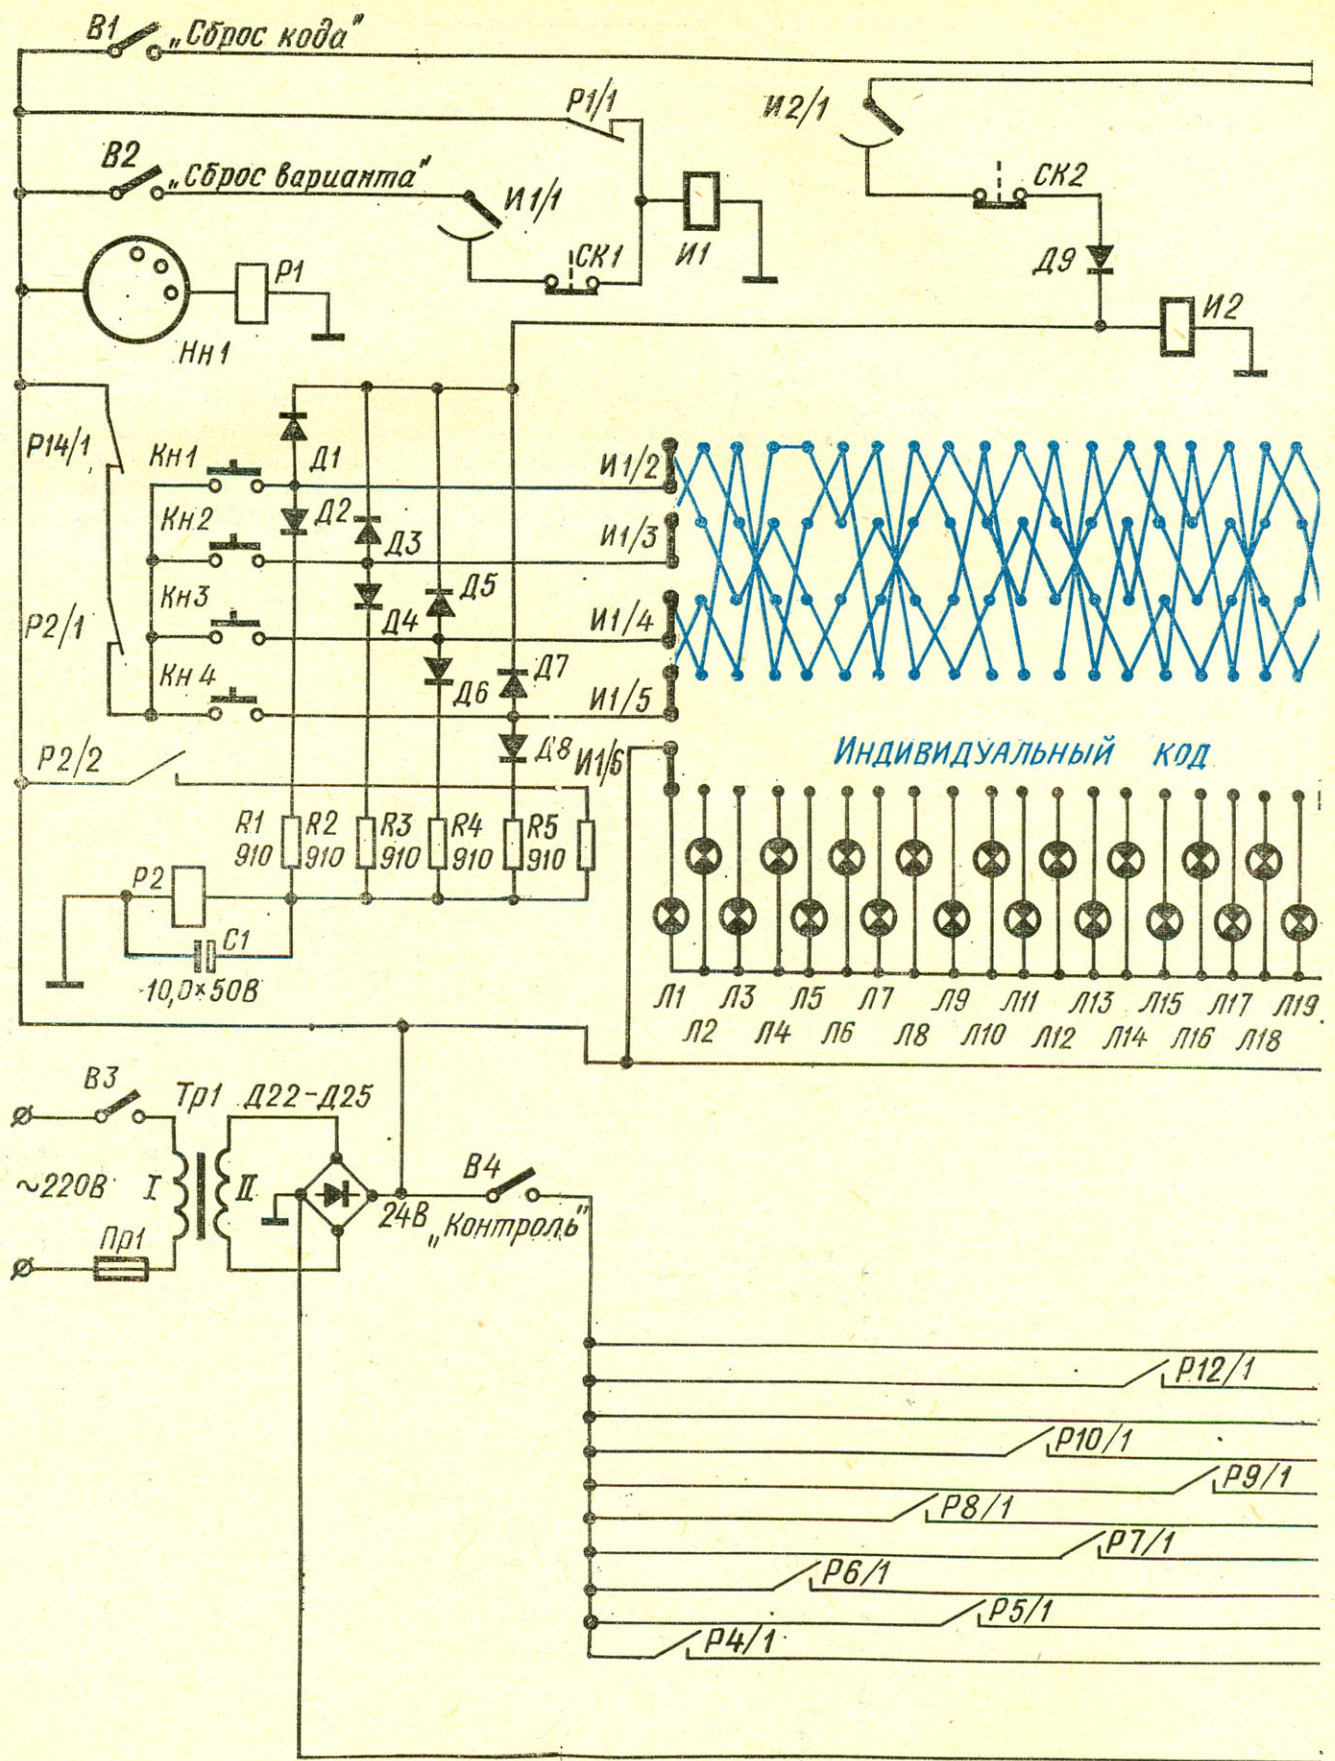 В1 „Сброс кода"
Р1/1
И2/1
В2 „Сброс варианта"
И1/1
СК2
СК1
И1
Д9
Р1
И2
Нн1
Р14/1
Кн1
Д1
И1/2
Кн2
Д2
Д3
И1/3
Кн3
Д4
Д5
И1/4
Р2/1
Кн4
Д6
Д7
И1/5
Р2/2
Д8
И1/6
Индивидуальный код
R1 R2 R3 R4 R5
910 910 910 910 910
Р2
С1
10,0×50В
Л1 Л3 Л5 Л7 Л9 Л11 Л13 Л15 Л17 Л19
Л2 Л4 Л6 Л8 Л10 Л12 Л14 Л16 Л18
В3
Тр1 Д22-Д25
~220В I II
В4
24В „Контроль"
Пр1
Р12/1
Р10/1
Р9/1
Р8/1
Р7/1
Р6/1
Р5/1
Р4/1